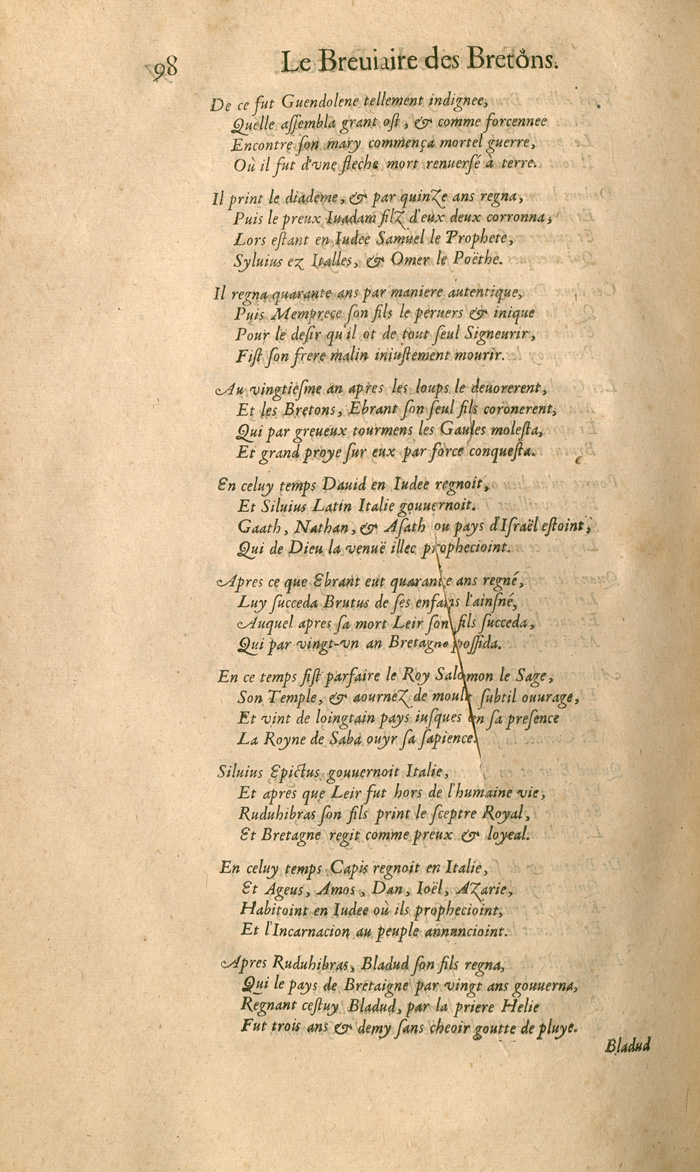 98
Le Breuiaire des Bretõns.
De ce fut Guendolene tellement indignee,
Quelle assembla grant ost, & comme forcennee
Encontre son mary commença mortel guerre,
Où il fut d'vne fleche mort renuersé à terre.
Il print le diademe, & par quinze ans regna,
Puis le preux Iuadam filz d'eux deux corronna,
Lors estant en Iudee Samuel le Prophete,
Syluius ez Italles, & Omer le Poëthe.
Il regna quarante ans par maniere autentique,
Puis Mempreçe son fils le peruers & inique
Pour le desir qu'il ot de tout seul Signeurir,
Fist son frere malin iniustement mourir.
Au vingtiesme an apres les loups le deuorerent,
Et les Bretons, Ebrant son seul fils coronerent,
Qui par greueux tourmens les Gaules molesta,
Et grand proye sur eux par force conquesta.
En celuy temps Dauid en Iudee regnoit,
Et Siluius Latin Italie gouuernoit.
Gaath, Nathan, & Asath ou pays d'Israël estoint,
Qui de Dieu la venuë illec prophecioint.
Apres ce que Ebrant eut quarante ans regné,
Luy succeda Brutus de ses enfans l'ainsné,
Auquel apres sa mort Leir son fils succeda,
Qui par vingt-vn an Bretagne possida.
En ce temps fist parfaire le Roy Salomon le Sage,
Son Temple, & aournez de moult subtil ouurage,
Et vint de loingtain pays iusques en sa presence
La Royne de Saba ouyr sa sapience.
Siluius Epictus gouuernoit Italie,
Et aprés que Leir fut hors de l'humaine vie,
Ruduhibras son fils print le sceptre Royal,
Et Bretagne regit comme preux & loyeal.
En celuy temps Capis regnoit en Italie,
Et Ageus, Amos, Dan, Ioël, Azarie,
Habitoint en Iudee où ils prophecioint,
Et l'Incarnacion au peuple annuncioint.
Apres Ruduhibras, Bladud son fils regna,
Qui le pays de Bretaigne par vingt ans gouuerna,
Regnant cestuy Bladud, par la priere Helie
Fut trois ans & demy sans cheoir goutte de pluye.
Bladud